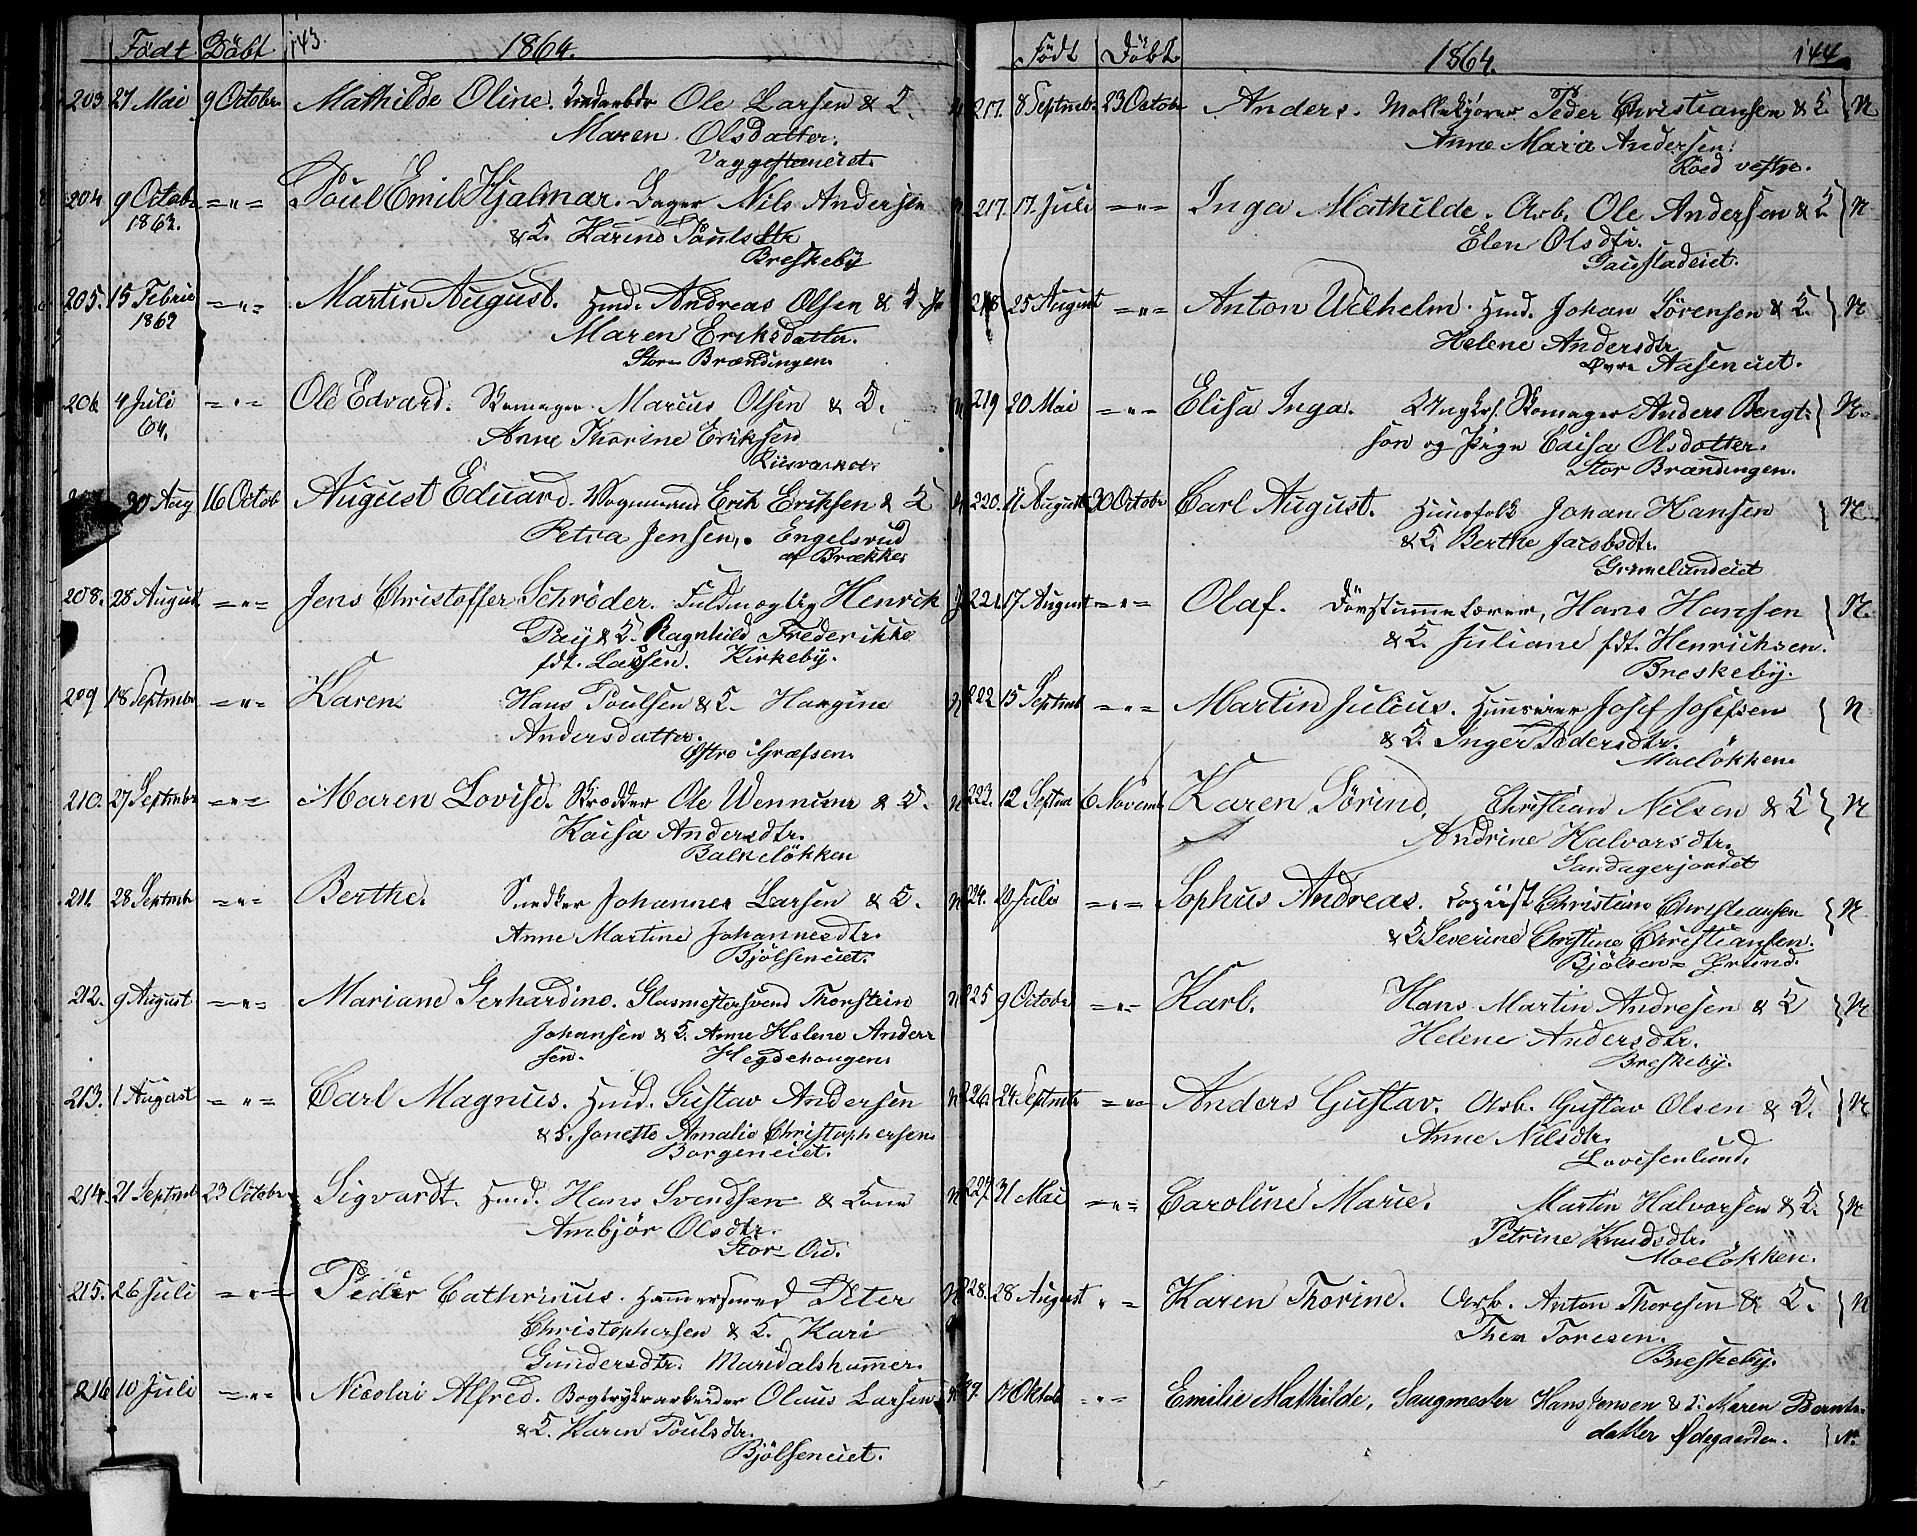 Födt Döbt 143. 1864.
203 27 Mai 9 Octobr Mathilde Oline. Ole Larsen & K.
Maren Olsdatter.
204 9 Octobr =„= Poul Emil Hjalmar. Nils Andersen
1863. & K. Karine Poulsdtr
Breskeby
205. 15 Februar =„= Martin August. Hmd. Andreas Olsen & K.
1862 Maren Eriksdatter.
Store Brændingen.
206 4 Juli =„= Ole Edvard. Skomager Marcus Olsen & K.
64. Anne Thorine Eriksen
30 Aug 16 Octob August Eduard. Vognmand Erik Eriksen & K
Petra Jensen,. Engelsrud
af Brække
208. 28 August =„= Jens Christoffer Schröder. Fuldmægtig Henrik
& K. Ragnhild Frederikke
fdt. Lassen. Kirkeby.
209 18 Septmbr =„= Karen. Hans Poulsen & K. Hargine
Andersdatter.
Østre Græfsen.
210. 27 Septmbr =„= Maren Lovise. Skrædder Ole Wennum & K.
Kaisa Andersdtr.
Balkeløkken
211. 28 Septmbr =„= Berthe. Snedker Johannes Larsen & K.
Anne Martine Johannesdtr.
Bjölseneiet.
212. 9 August =„= Mariane Gerhardine. Glasmestersvend Thorstein
Johansen & K. Anne Helene Ander
sen. Hegdehaugen.
213. 1 August =„= Carl Magnus. Hmd. Gustav Andersen
& K. Janette Amalie Christophersen.
Borgeneiet.
214. 21 Septmb 23 Octobr Sigvardt. Hmd. Hans Svendsen & Kone
Ambjör Olsdtr.
Stor-Oud.
215. 26 Juli =„= Peder Cathrinus. Hammersmed Peter
Christophersen & K. Kari
Gundersdtr. Maridalshammer.
216 10 Juli =„= Nicolai Alfred. Bogtrykarbeider Olaus Larsen
& K. Karen Poulsdtr.
Bjölseneiet.
Födt Döbt 1864. 144.
217. 8 Septmbr 23 Octobr Anders. Møllekjører Peder Christiansen & K. } N
Anne Maria Andersen.
Roed vestre.
217. 17. Juli =„= Inga Mathilde. Arb. Ole Andersen & K. } N
Elen Olsdtr.
Gaustadeiet.
218 25 August =„= Anton Wilhelm. Hmd. Johan Sörensen & K. } N
Helene Andersdtr
Øvre Aaseneiet.
219 20 Mai =„= Elisa Inga. Ungkrl. Skomager Anders Bengt- } N.
son og Pige Caisa Olsdatter.
Stor Brændingen.
220. 11 August 30 Octobr Carl August. Huusfolk Johan Hansen } N.
& K. Berthe Jacobsdtr.
Grimelundeiet
221. 17 August =„= Olaf. Døvstummelærer, Hans Hansen } N.
& K. Juliane fdt. Henrichsen.
Breskeby.
222 15 Septmb =„= Martin Julius. Huuseier Josef Josefsen } N
& K. Inger Pedersdtr.
Moeløkken
223. 12 Septm 6 Novemb Karen Sörine. Christian Nilsen & K } N
Andrine Halvorsdtr.
Sandagerjordet
224. 20 Juli =„= Sophus Andreas. Copiist Christian Christiansen } N
& K Severine Christine Christiansen.
Bjölsen-Grund.
225 9 Octobr =„= Karl. Hans Martin Andresen & K } N
Helene Andersdtr.
Breskeby.
226. 24 Septmbr =„= Anders Gustav. Arb. Gustav Olsen & K. } N
Anne Nilsdtr.
Lovisenlund.
227 31 Mai =„= Caroline Marie. Martin Halvorsen & K. } N
Petrine Knudsdtr.
Moeløkken.
228. 28 August „ = Karen Thorine. Arb. Anton Thoresen & K. } N
Thea Toresen.
Breskeby.
17 Oktob =„= Emilie Mathilde, Saugmester Hans Jensen & K. Maren Bernts-
datter Ødegaarden. } N.